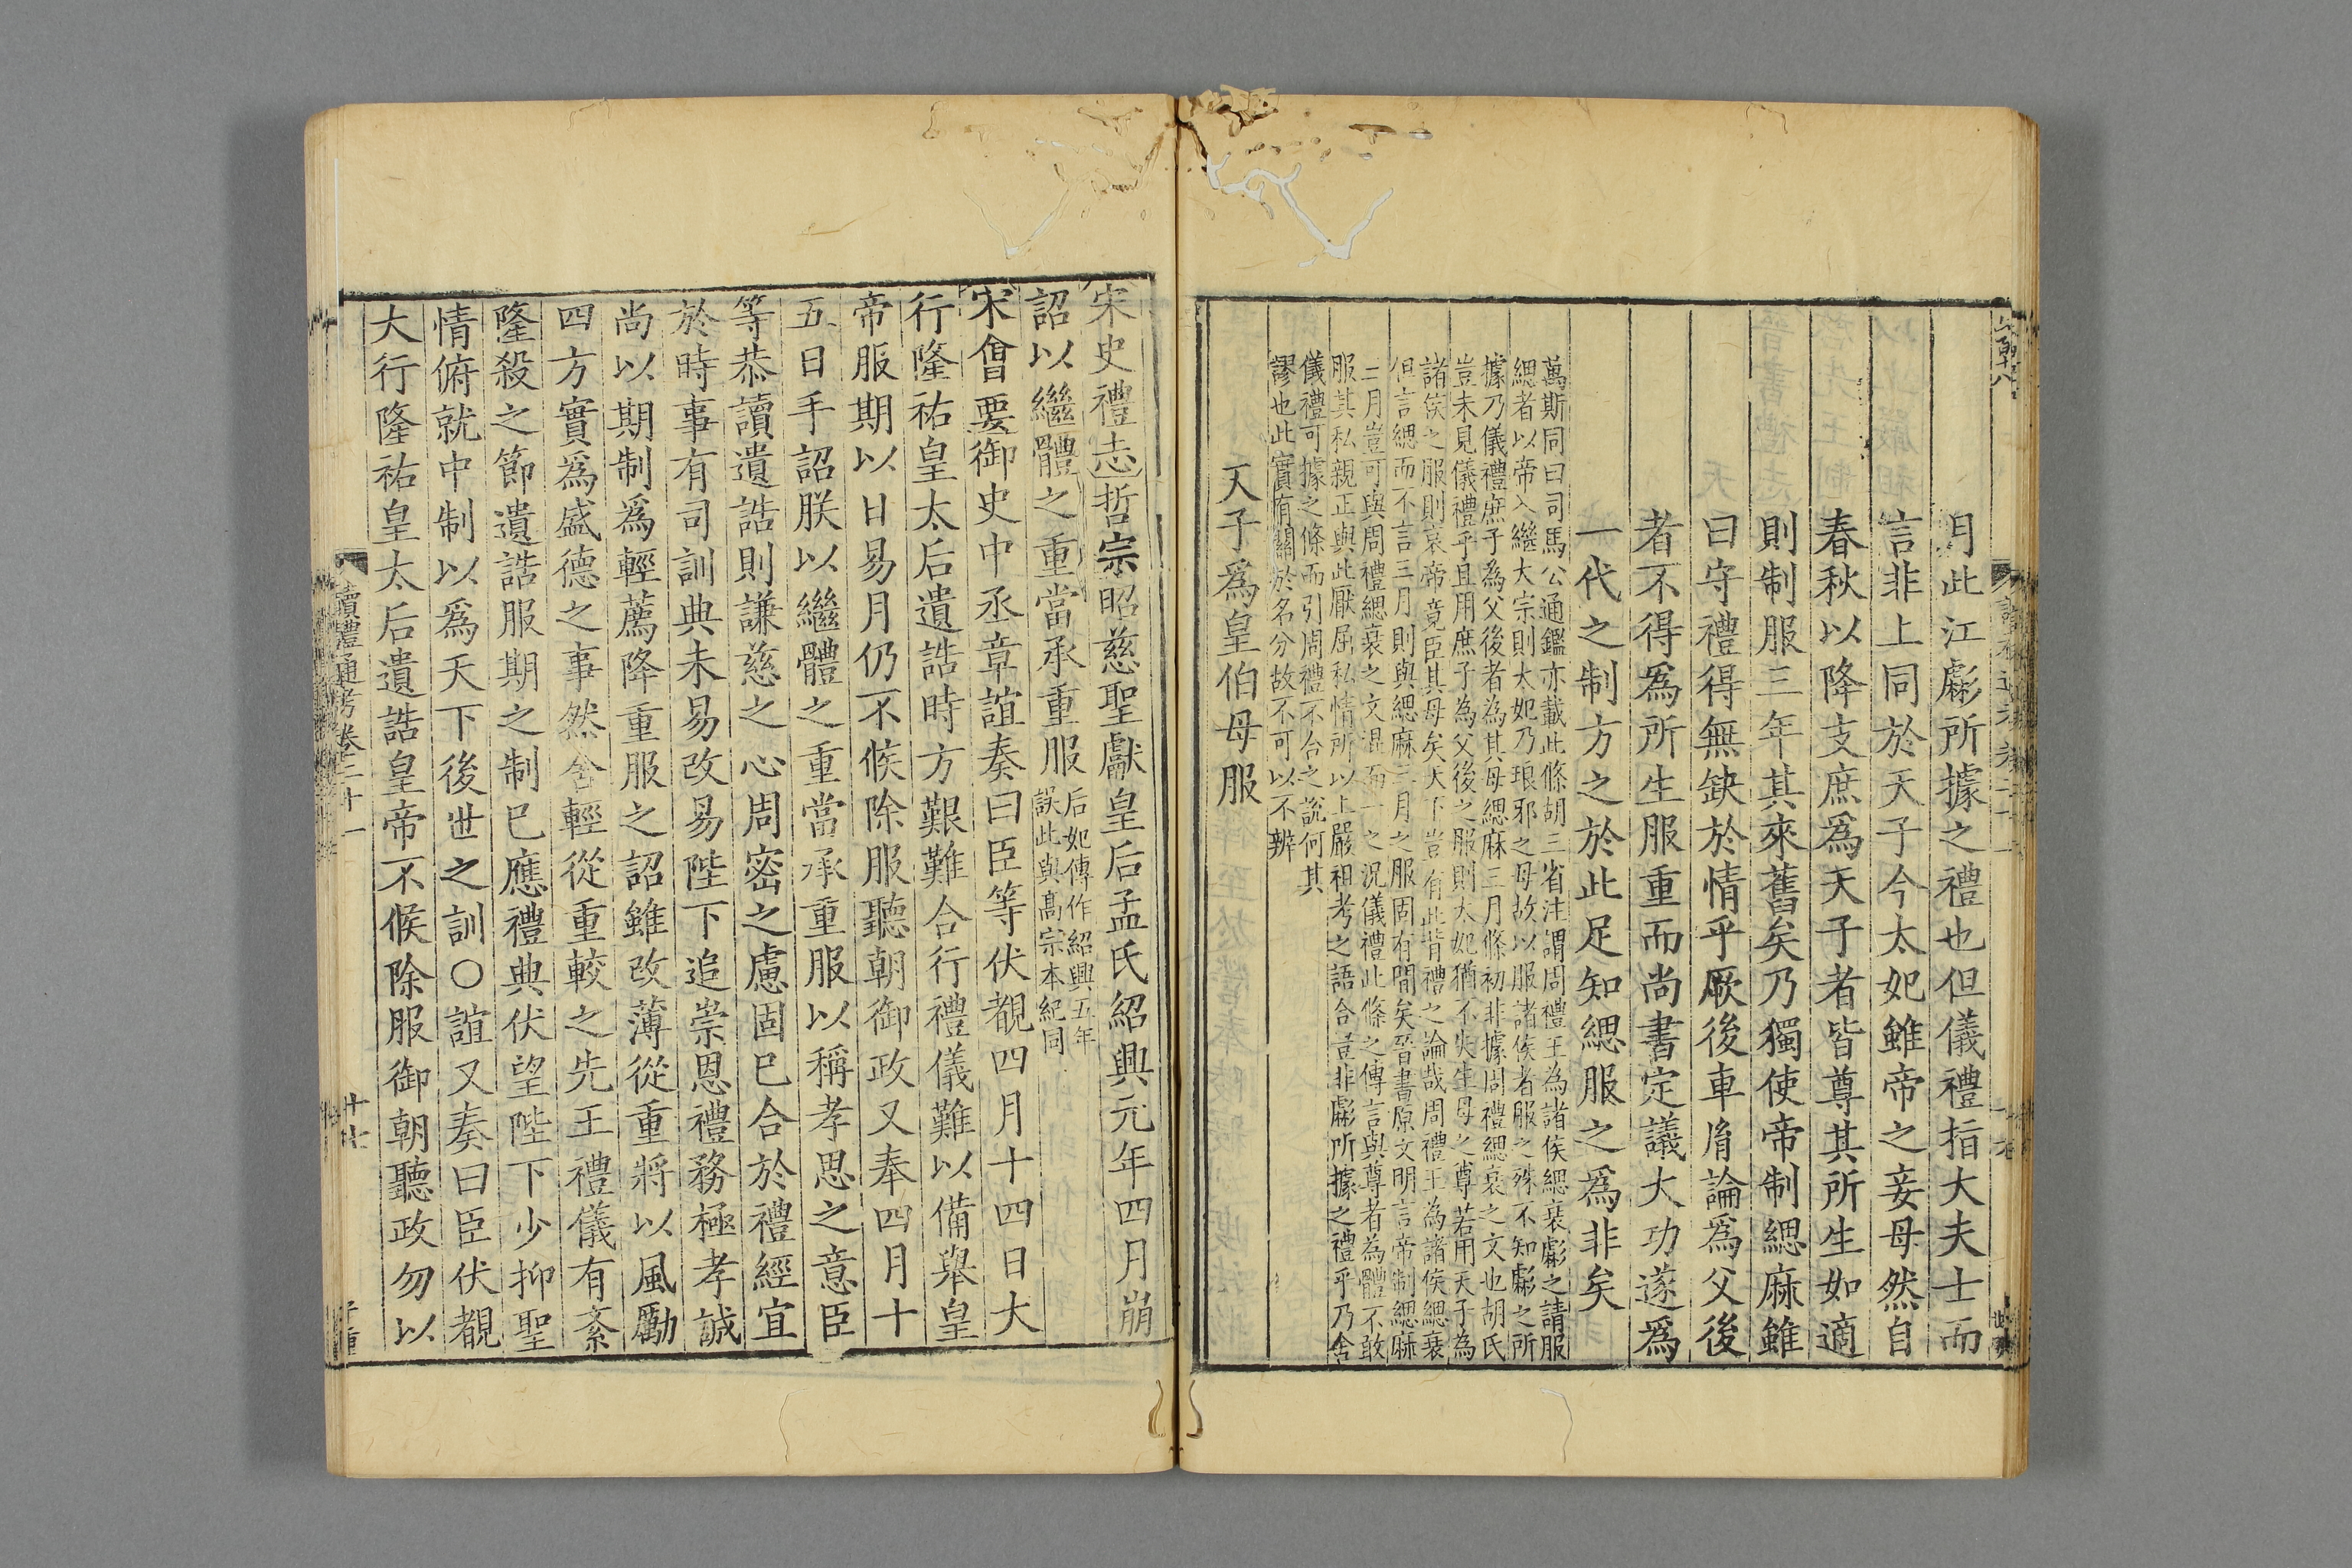 月此江彪所據之禮也但儀禮指大夫士而
言非上同於天子今太妃雖帝之妾母然自
春秋以降支庶爲天子者皆尊其所生如適
則制服三年其來舊矣乃獨使帝制緦麻雖
曰守禮得無缺於情乎厥後車胤論爲父後
者不得爲所生服重而尚書定議大功遂爲
一代之制方之於此足知緦服之爲非矣
萬斯同曰司馬公通鑑亦載此條胡三省注謂周禮王為諸侯緦衰彪之請服
緦者以帝入繼大宗則太妃乃琅邪之母故以服諸侯者服之殊不知彪之所
據乃儀禮庶子為父後者為其母緦麻三月條初非據周禮緦衰之文也胡氏
豈未見儀禮乎且用庶子為父後之服則太妃猶不失生母之尊若用天子為
諸侯之服則哀帝竟臣其母矣天下豈有此背禮之論哉周禮王為諸侯緦衰
但言緦而不言三月則與緦麻三月之服固有間矣晉書原文明言帝制緦麻
三月豈可與周禮緦衰之文混而一之況儀禮此條之傳言與尊者為體不敢
服其私親正與此厭屈私情所以上嚴祖考之語合豈非彪所據之禮乎乃舍
儀禮可據之條而引周禮不合之說何其
謬也此實有關於名分故不可以不辨
天子爲皇伯母服
宋史禮志哲宗昭慈聖獻皇后孟氏紹興元年四月崩
詔以繼體之重當承重服后妃傳作紹興五年
誤此與高宗本紀同
宋會要御史中丞章誼奏曰臣等伏覩四月十四日大
行隆祐皇太后遺誥時方艱難合行禮儀難以備舉皇
帝服期以日易月仍不候除服聽朝御政又奉四月十
五日手詔朕以繼體之重當承重服以稱孝思之意臣
等恭讀遺誥則謙慈之心周密之慮固已合於禮經宜
於時事有司訓典未易改易陛下追崇恩禮務極孝誠
尚以期制爲輕薦降重服之詔雖改薄從重將以風勵
四方實爲盛德之事然舍輕從重較之先王禮儀有紊
隆殺之節遺誥服期之制已應禮典伏望陛下少抑聖
情俯就中制以爲天下後世之訓〇誼又奏曰臣伏覩
大行隆祐皇太后遺誥皇帝不候除服御朝聽政勿以
讀禮通考卷二十一
十七